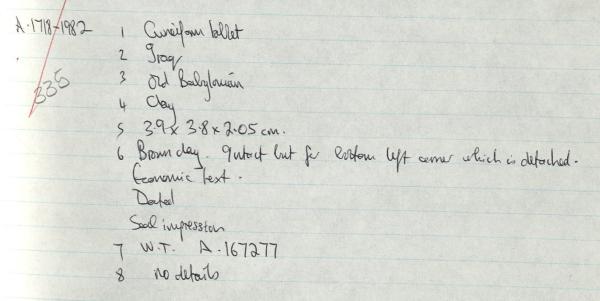 A.1718-1982 1 Cuneiform tablet
2 Iraq
335
3 Old Babylonian
4 Clay
5 3.9 x 3.8 x 2.05 cm.
6 Brown clay. Intact but for bottom left corner which is detached.
Economic Text.
Dated
Seal impression
7 W.T. A.167277
8 no details